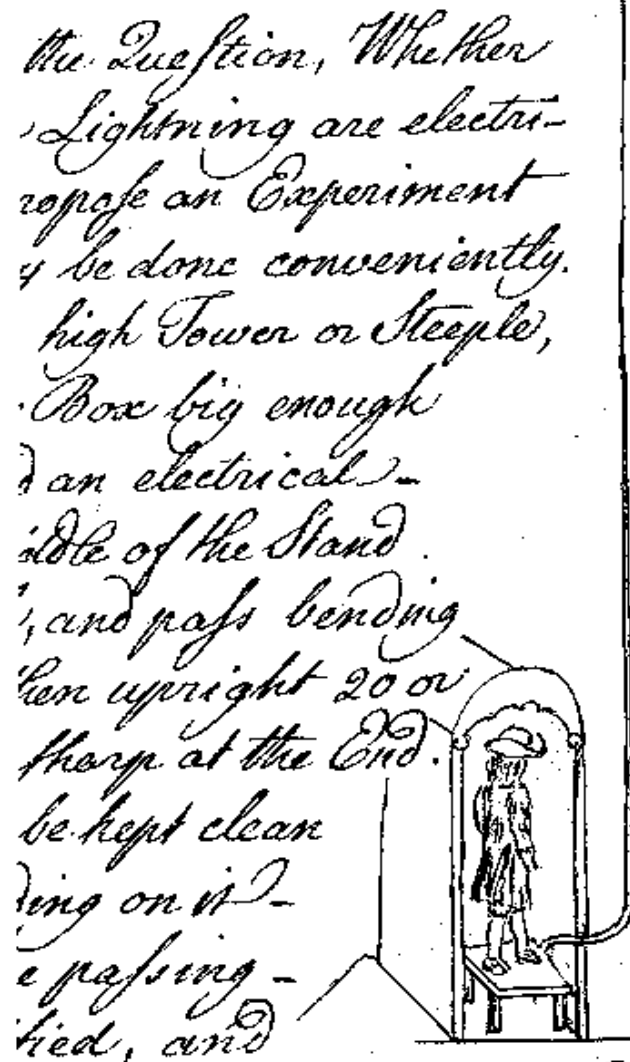 the Queſtion, Whether
Lightning are electri-
ropoſe an Experiment
y be done conveniently.
high Tower or Steeple,
Box big enough
d an electrical -
iddle of the Stand
, and paſs bending
hen upright 20 or
ſharp at the End.
be kept clean
ding on it -
e paſsing -
ified, and